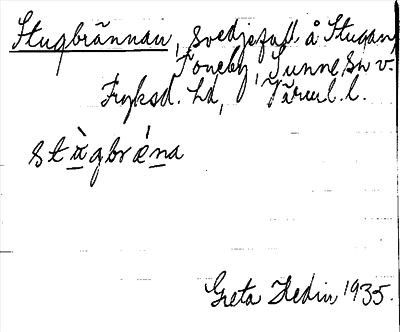 Stugbrännan, svedjefall å Stugan,
Toneby, Sunne sn v.
Fryksd. hd, Värml. l.
stu̠̇̀gbrǽn̠a
Greta Hedin 1935.